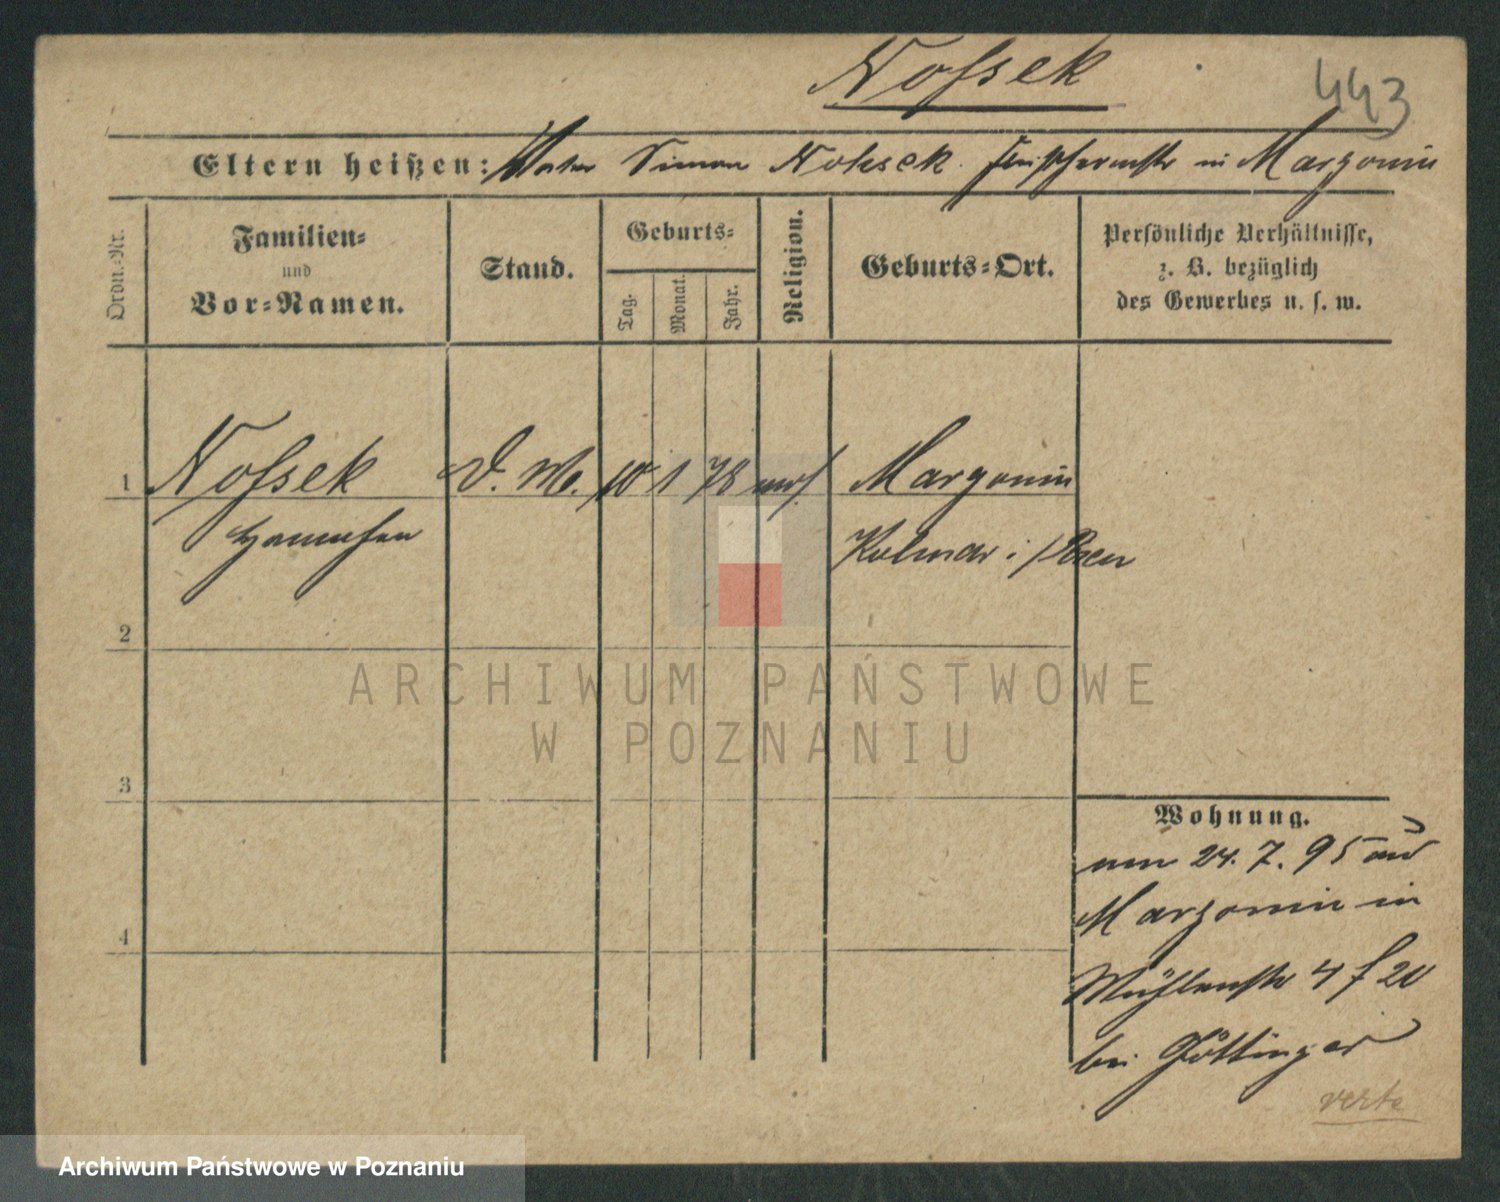 Nossek
443
Eltern heißen: Vater Simon Nossek Fleischermstr in Margonin
Ordn.-Nr.
Familien-
und
Vor-Namen.
Stand.
Geburts-
Tag.
Monat.
Jahr.
Religion.
Geburts-Ort.
Persönliche Verhältnisse,
z. B. bezüglich
des Gewerbes u. s. w.
1 Nossek D. M. 10 1 78 mos. Margonin
Kolmar i/Posen
2
ARCHIWUM PAŃSTWOWE
W POZNANIU
3
4
Wohnung.
am 24. 7. 95 aus
Margonin in
Mühlenstr 4 f 20
bei Göttinger
verte
Archiwum Państwowe w Poznaniu